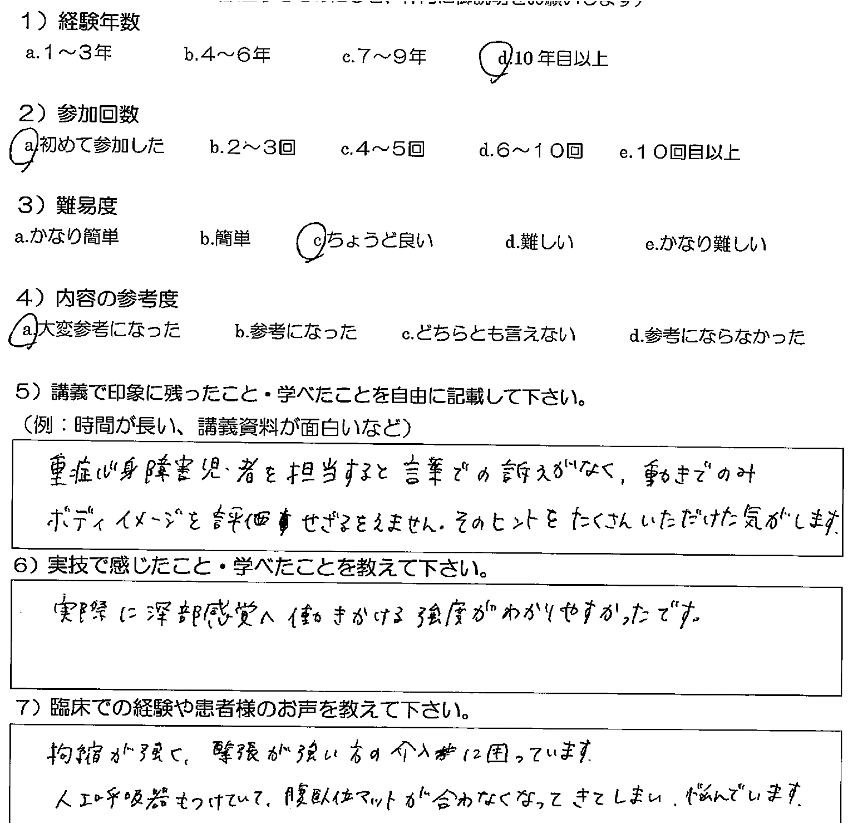 1）経験年数
a.1～3年 b.4～6年 c.7～9年 d.10年目以上
2）参加回数
a.初めて参加した b.2～3回 c.4～5回 d.6～10回 e.10回目以上
3）難易度
a.かなり簡単 b.簡単 c.ちょうど良い d.難しい e.かなり難しい
4）内容の参考度
a.大変参考になった b.参考になった c.どちらとも言えない d.参考にならなかった
5）講義で印象に残ったこと・学べたことを自由に記載して下さい。
（例：時間が長い、講義資料が面白いなど）
重症心身障害児・者を担当すると言葉での訴えがなく、動きでのみ
ボディイメージを評価せざるをえません。そのヒントをたくさんいただけた気がします。
6）実技で感じたこと・学べたことを教えて下さい。
実際に深部感覚へ働きかける強度がわかりやすかったです。
7）臨床での経験や患者様のお声を教えて下さい。
拘縮が強く、緊張が強い方の介入に困っています。
人工呼吸器もつけていて、腹臥位マットが合わなくなってきてしまい、悩んでいます。